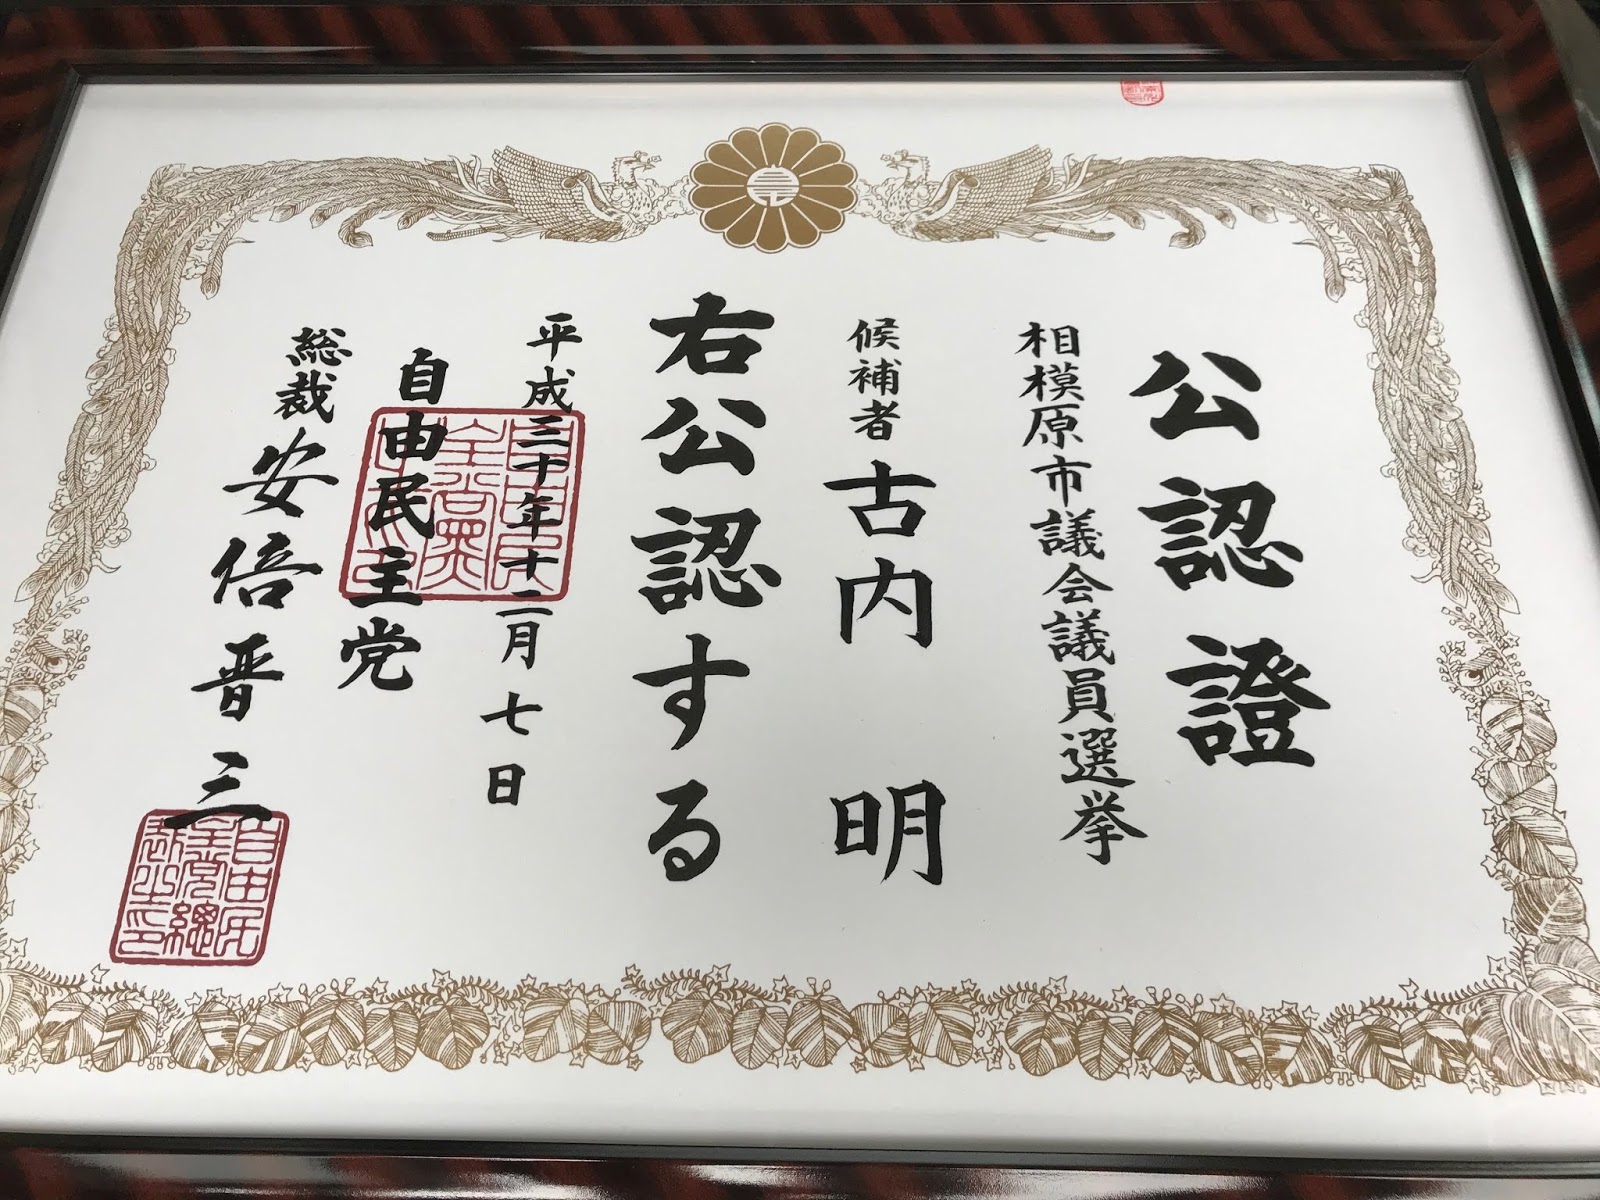 公認證
相模原市議会議員選挙
候補者 古内 明
右公認する
平成三十年十二月七日
自由民主党
総裁 安倍晋三